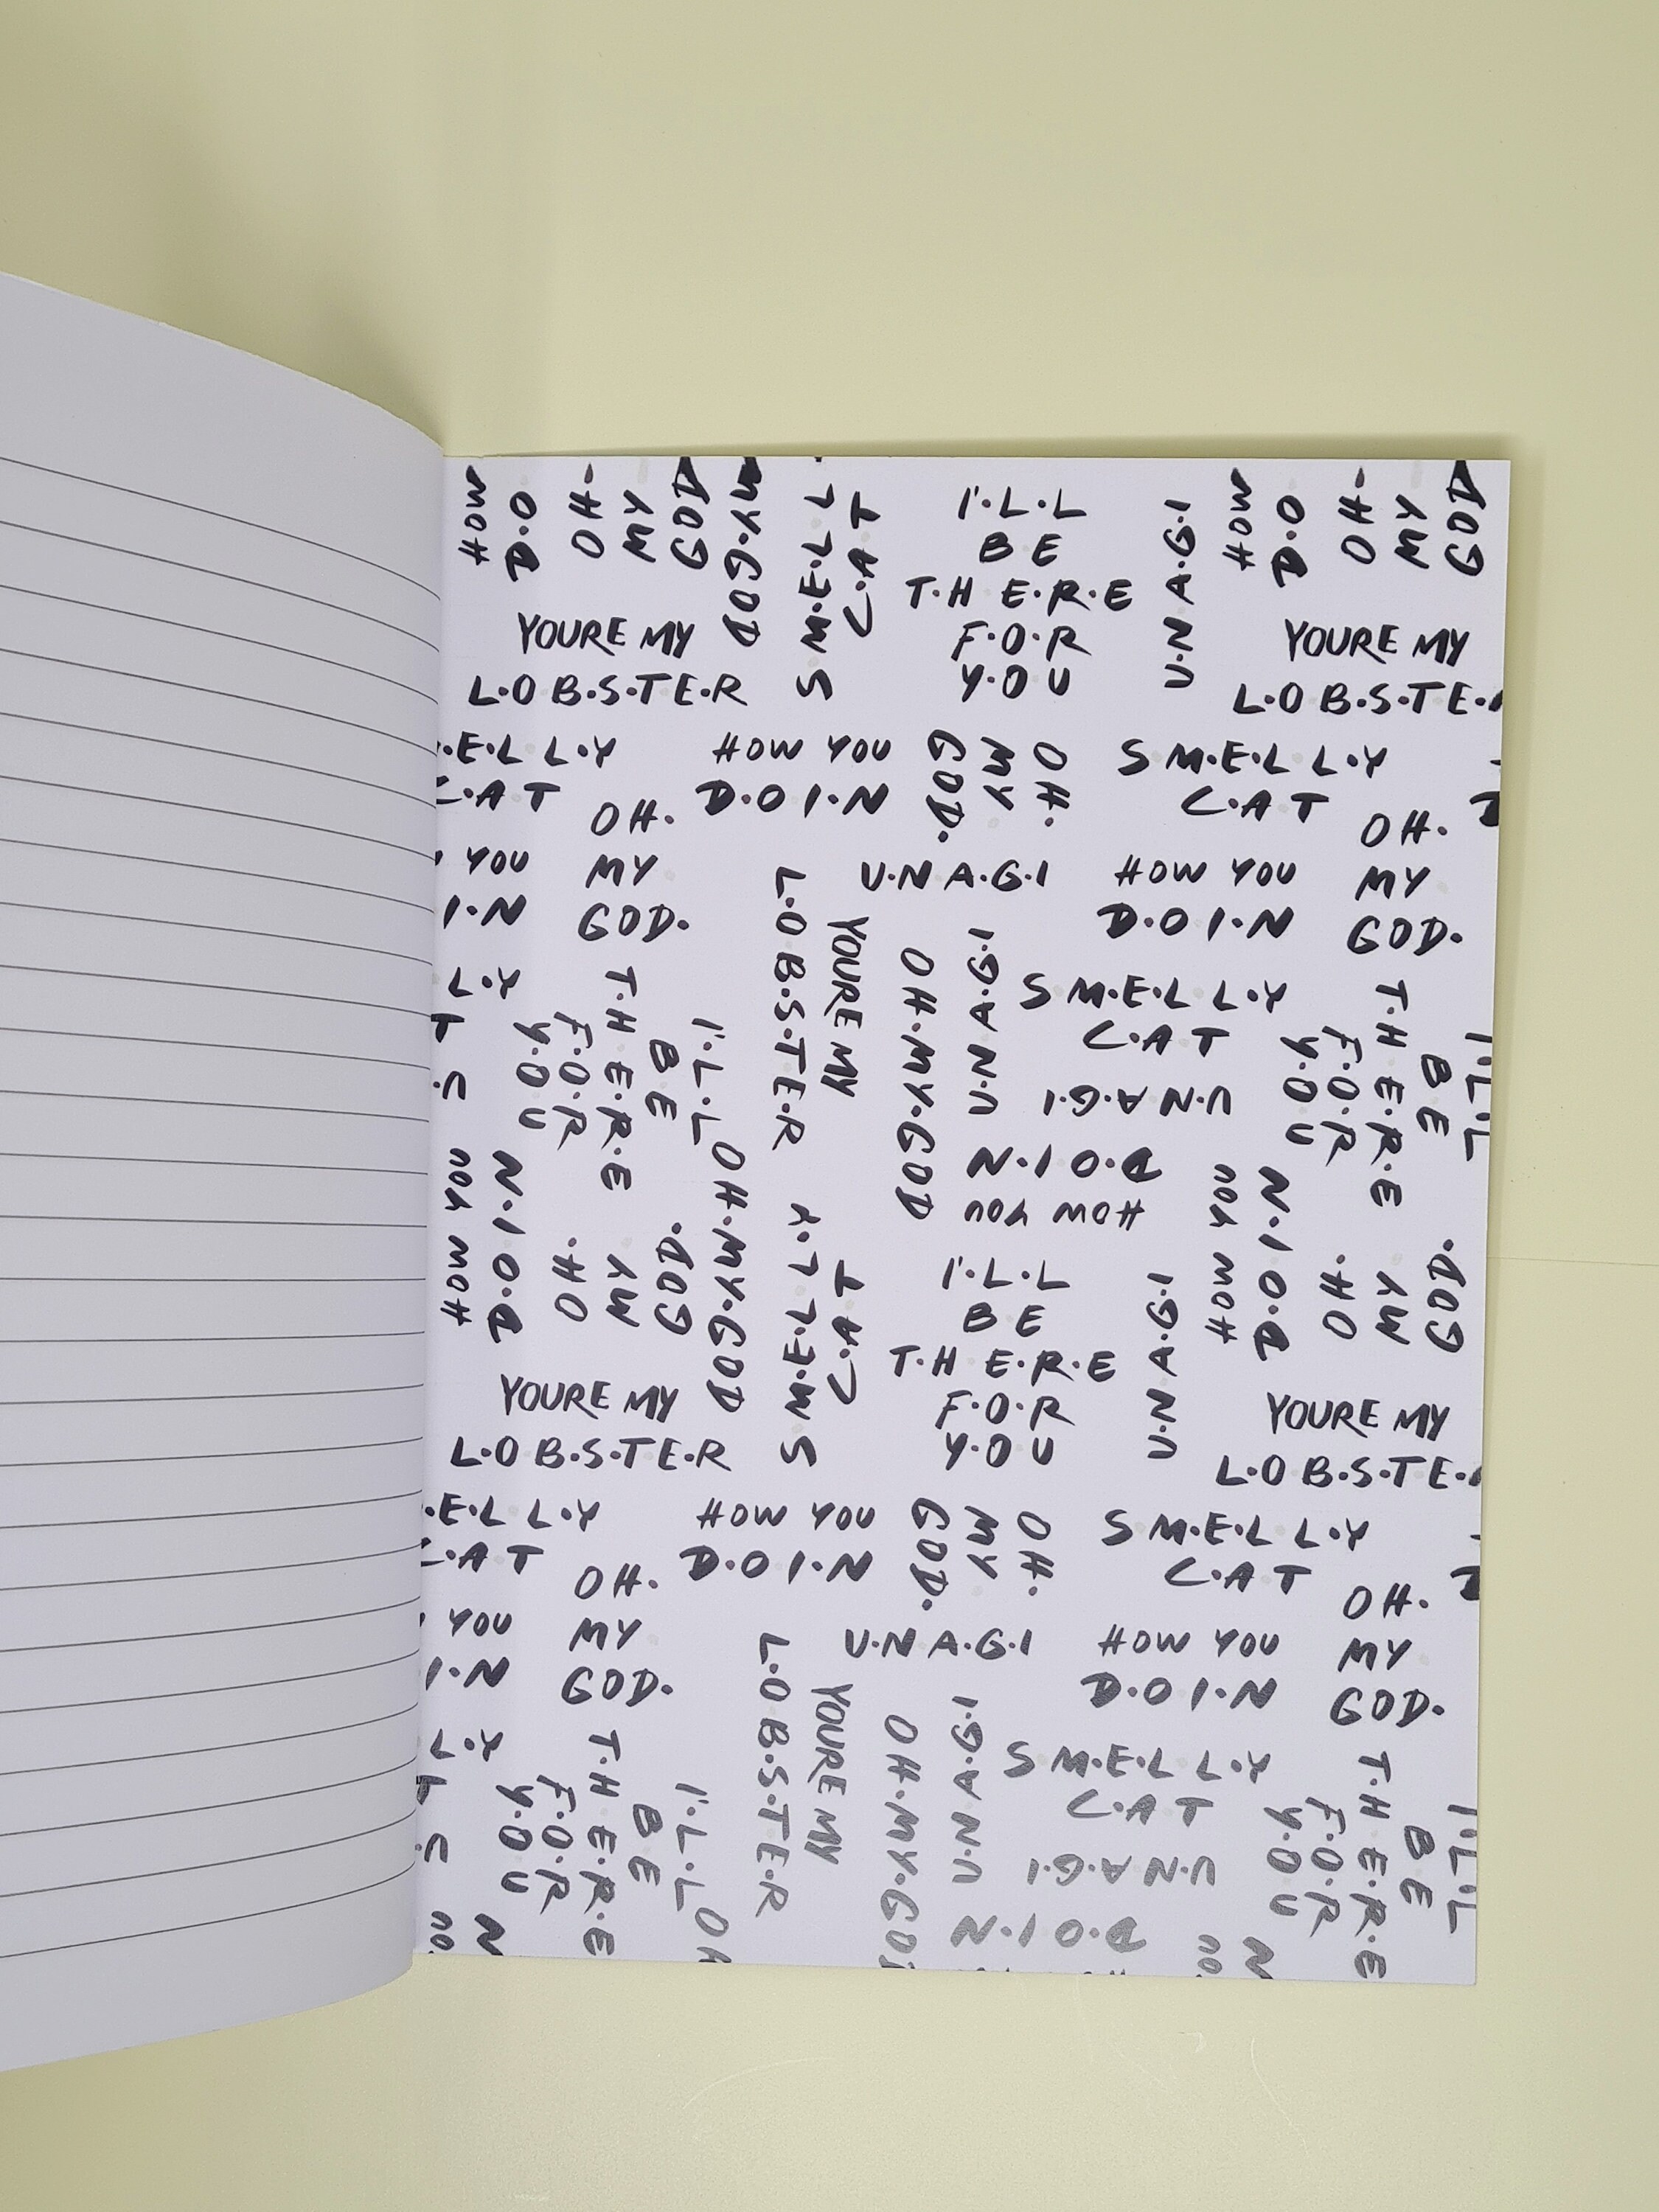 HOW
D.O
OH
MY
GOD
MY.GOD
S M.E.L.L
C.A.T
I'.L.L
B E
T.H E.R.E
F.O.R
Y.O U
U.N A.G.I
HOW
D.O
OH
MY
GOD
YOURE MY
L.O B.S.T E.R
YOURE MY
L.O B.S.T E.
.E.L L.Y
C.A T
HOW YOU
D.O I.N
OH.
MY
GOD.
S M.E.L L.Y
C.A T
OH.
MY
GOD.
YOU
I.N
OH.
MY
GOD.
U.N A.G.I
HOW YOU
D.O I.N
L.O B.S.T E.R
YOURE MY
OH.MY.GOD
U.N A.G.I
S M.E.L L.Y
C.A T
U.N A.G.I
HOW YOU
D.O I.N
L.Y
T
I'.L.L
B E
T.H E.R.E
F.O.R
Y.O U
I'.L.L
B E
T.H E.R.E
F.O.R
Y.O U
HOW YOU
D.O I.N
OH.
MY
GOD.
OH.MY.GOD
S M.E.L.L.Y
C.A.T
I'.L.L
B E
T.H E.R.E
F.O.R
Y.O U
U.N A.G.I
HOW YOU
D.O I.N
OH.
MY
GOD.
YOURE MY
L.O B.S.T E.R
YOURE MY
L.O B.S.T E.
.E.L L.Y
C.A T
HOW YOU
D.O I.N
OH.
MY
GOD.
S M.E.L L.Y
C.A T
OH.
MY
GOD.
YOU
I.N
OH.
MY
GOD.
U.N A.G.I
HOW YOU
D.O I.N
L.O B.S.T E.R
YOURE MY
OH.MY.GOD
U.N A.G.I
S M.E.L L.Y
C.A T
U.N A.G.I
D.O I.N
L.Y
T
I'.L.L
B E
T.H E.R.E
F.O.R
Y.O U
I'.L.L
B E
T.H E.R.E
F.O.R
Y.O U
OH